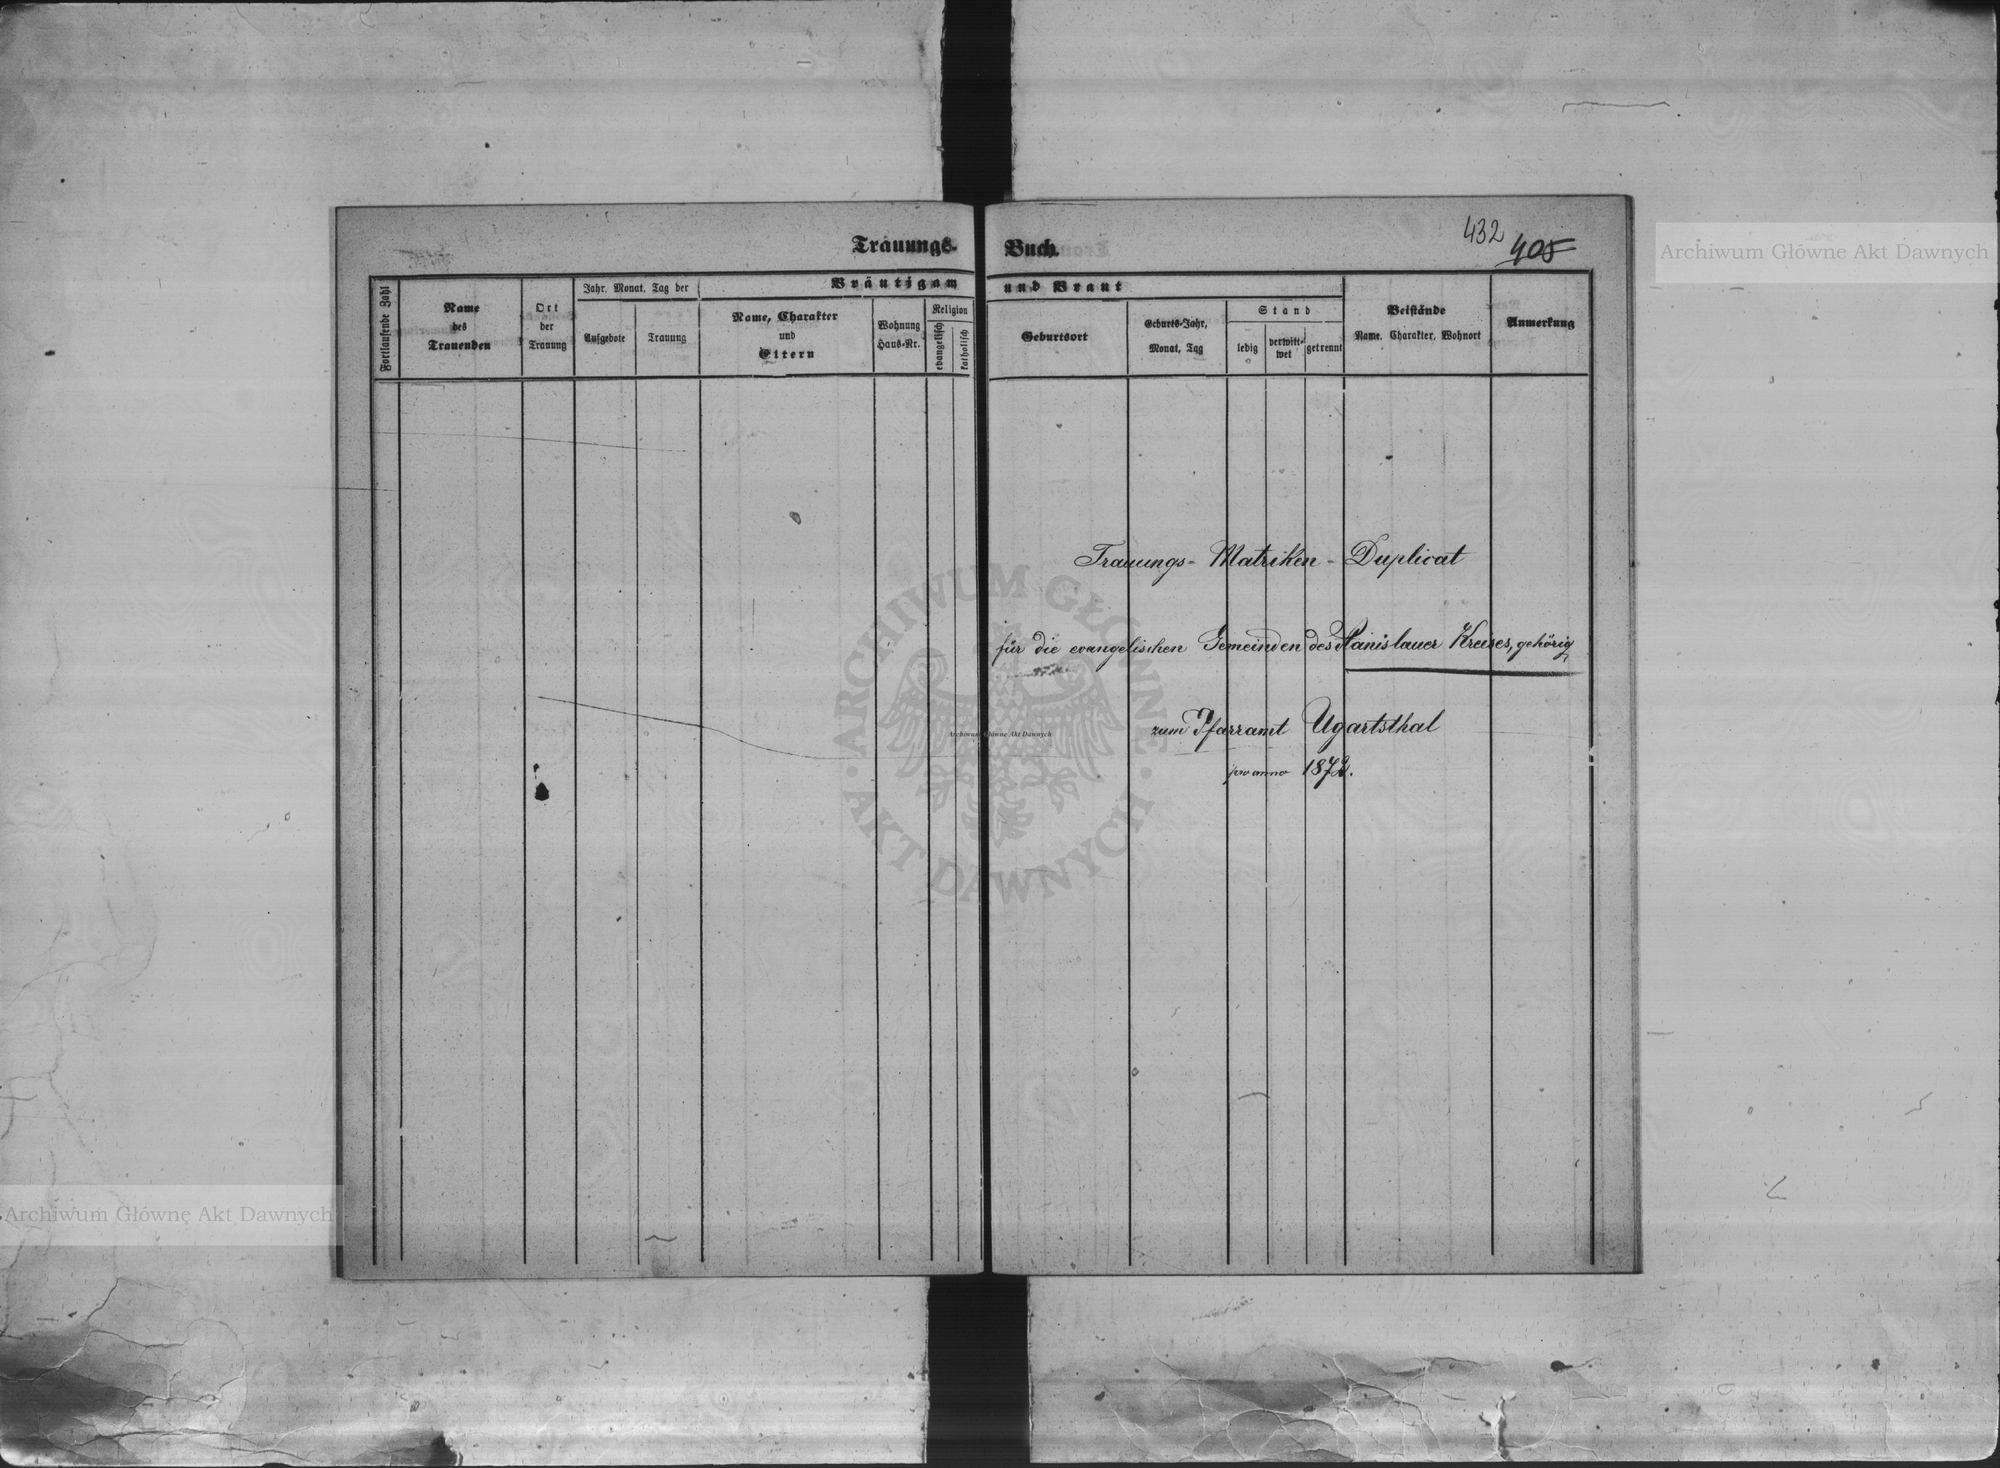 432
405
Trauungs-Buch.
Fortlaufende Zahl
Name des Trauenden
Ort der Trauung
Jahr, Monat, Tag der
Aufgebote
Trauung
Bräutigam und Braut
Name, Charakter und Eltern
Wohnung Haus-Nr.
Religion
evangelisch
katholisch
Geburtsort
Geburts-Jahr, Monat, Tag
Stand
ledig
verwittwet
getrennt
Beistände
Name, Charakter, Wohnort
Anmerkung
Trauungs-Matriken-Duplicat
für die evangelischen Gemeinden des Stanislauer Kreises, gehörig
zum Pfarramt Ugartsthal
pro anno 1872.
Archiwum Główne Akt Dawnych
Archiwum Główne Akt Dawnych
Archiwum Główne Akt Dawnych
ARCHIWUM GŁÓWNE · AKT DAWNYCH ·